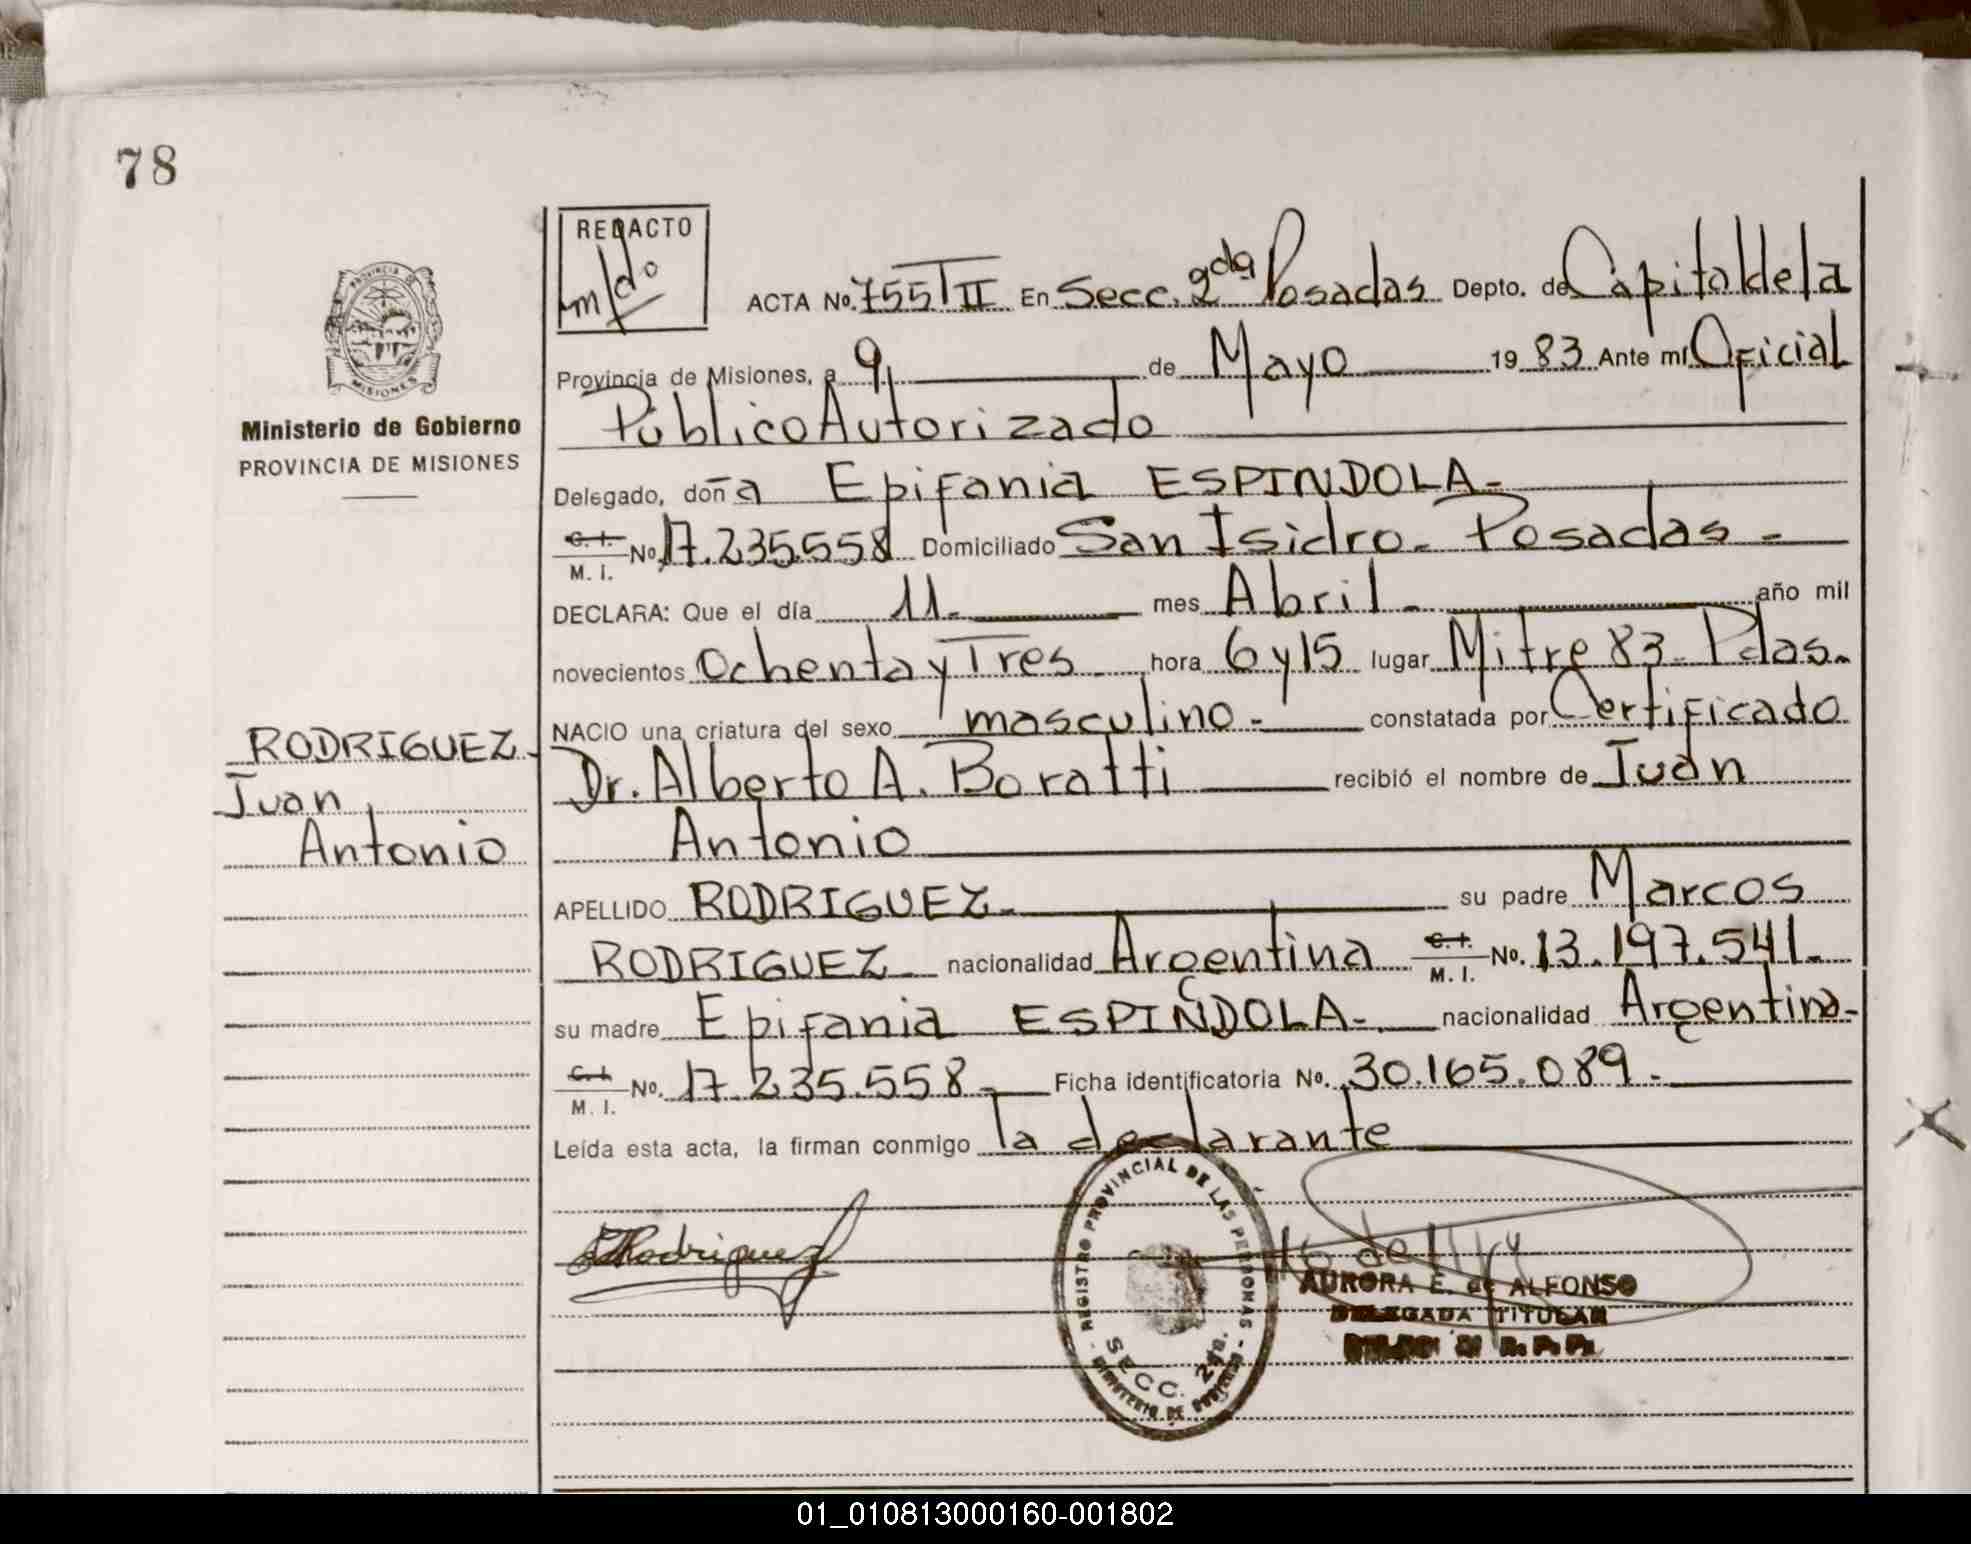 78
REDACTO
m/do
PROVINCIA DE
MISIONES
Ministerio de Gobierno
PROVINCIA DE MISIONES
ACTA No. 755 TII En Secc. 2da Posadas Depto. de Capital de la
Provincia de Misiones, a 9, de Mayo 19 83 Ante mí Oficial
Público Autorizado
Delegado, doña Epifania ESPINDOLA-
C. I. M. I. No. 17.235.558 Domiciliado San Isidro- Posadas -
DECLARA: Que el día 11- mes Abril- año mil
novecientos Ochenta y Tres hora 6 y 15 lugar Mitre 83- Pdas.
NACIO una criatura del sexo masculino - constatada por Certificado
Dr. Alberto A. Boratti recibió el nombre de Juan
Antonio
RODRIGUEZ-
Juan,
Antonio
APELLIDO RODRIGUEZ- su padre Marcos
RODRIGUEZ nacionalidad Argentina C. I. M. I. No. 13.197.541.-
su madre Epifania ESPIÑDOLA- nacionalidad Argentina-
C. I. M. I. No. 17.235.558- Ficha identificatoria No. 30.165.089.-
Leída esta acta, la firman conmigo la declarante
Rodriguez
REGISTRO PROVINCIAL DE LAS PERSONAS
SECC. 2da.
MINISTERIO DE GOBIERNO
AURORA E. de ALFONSO
DELEGADA TITULAR
01_010813000160-001802